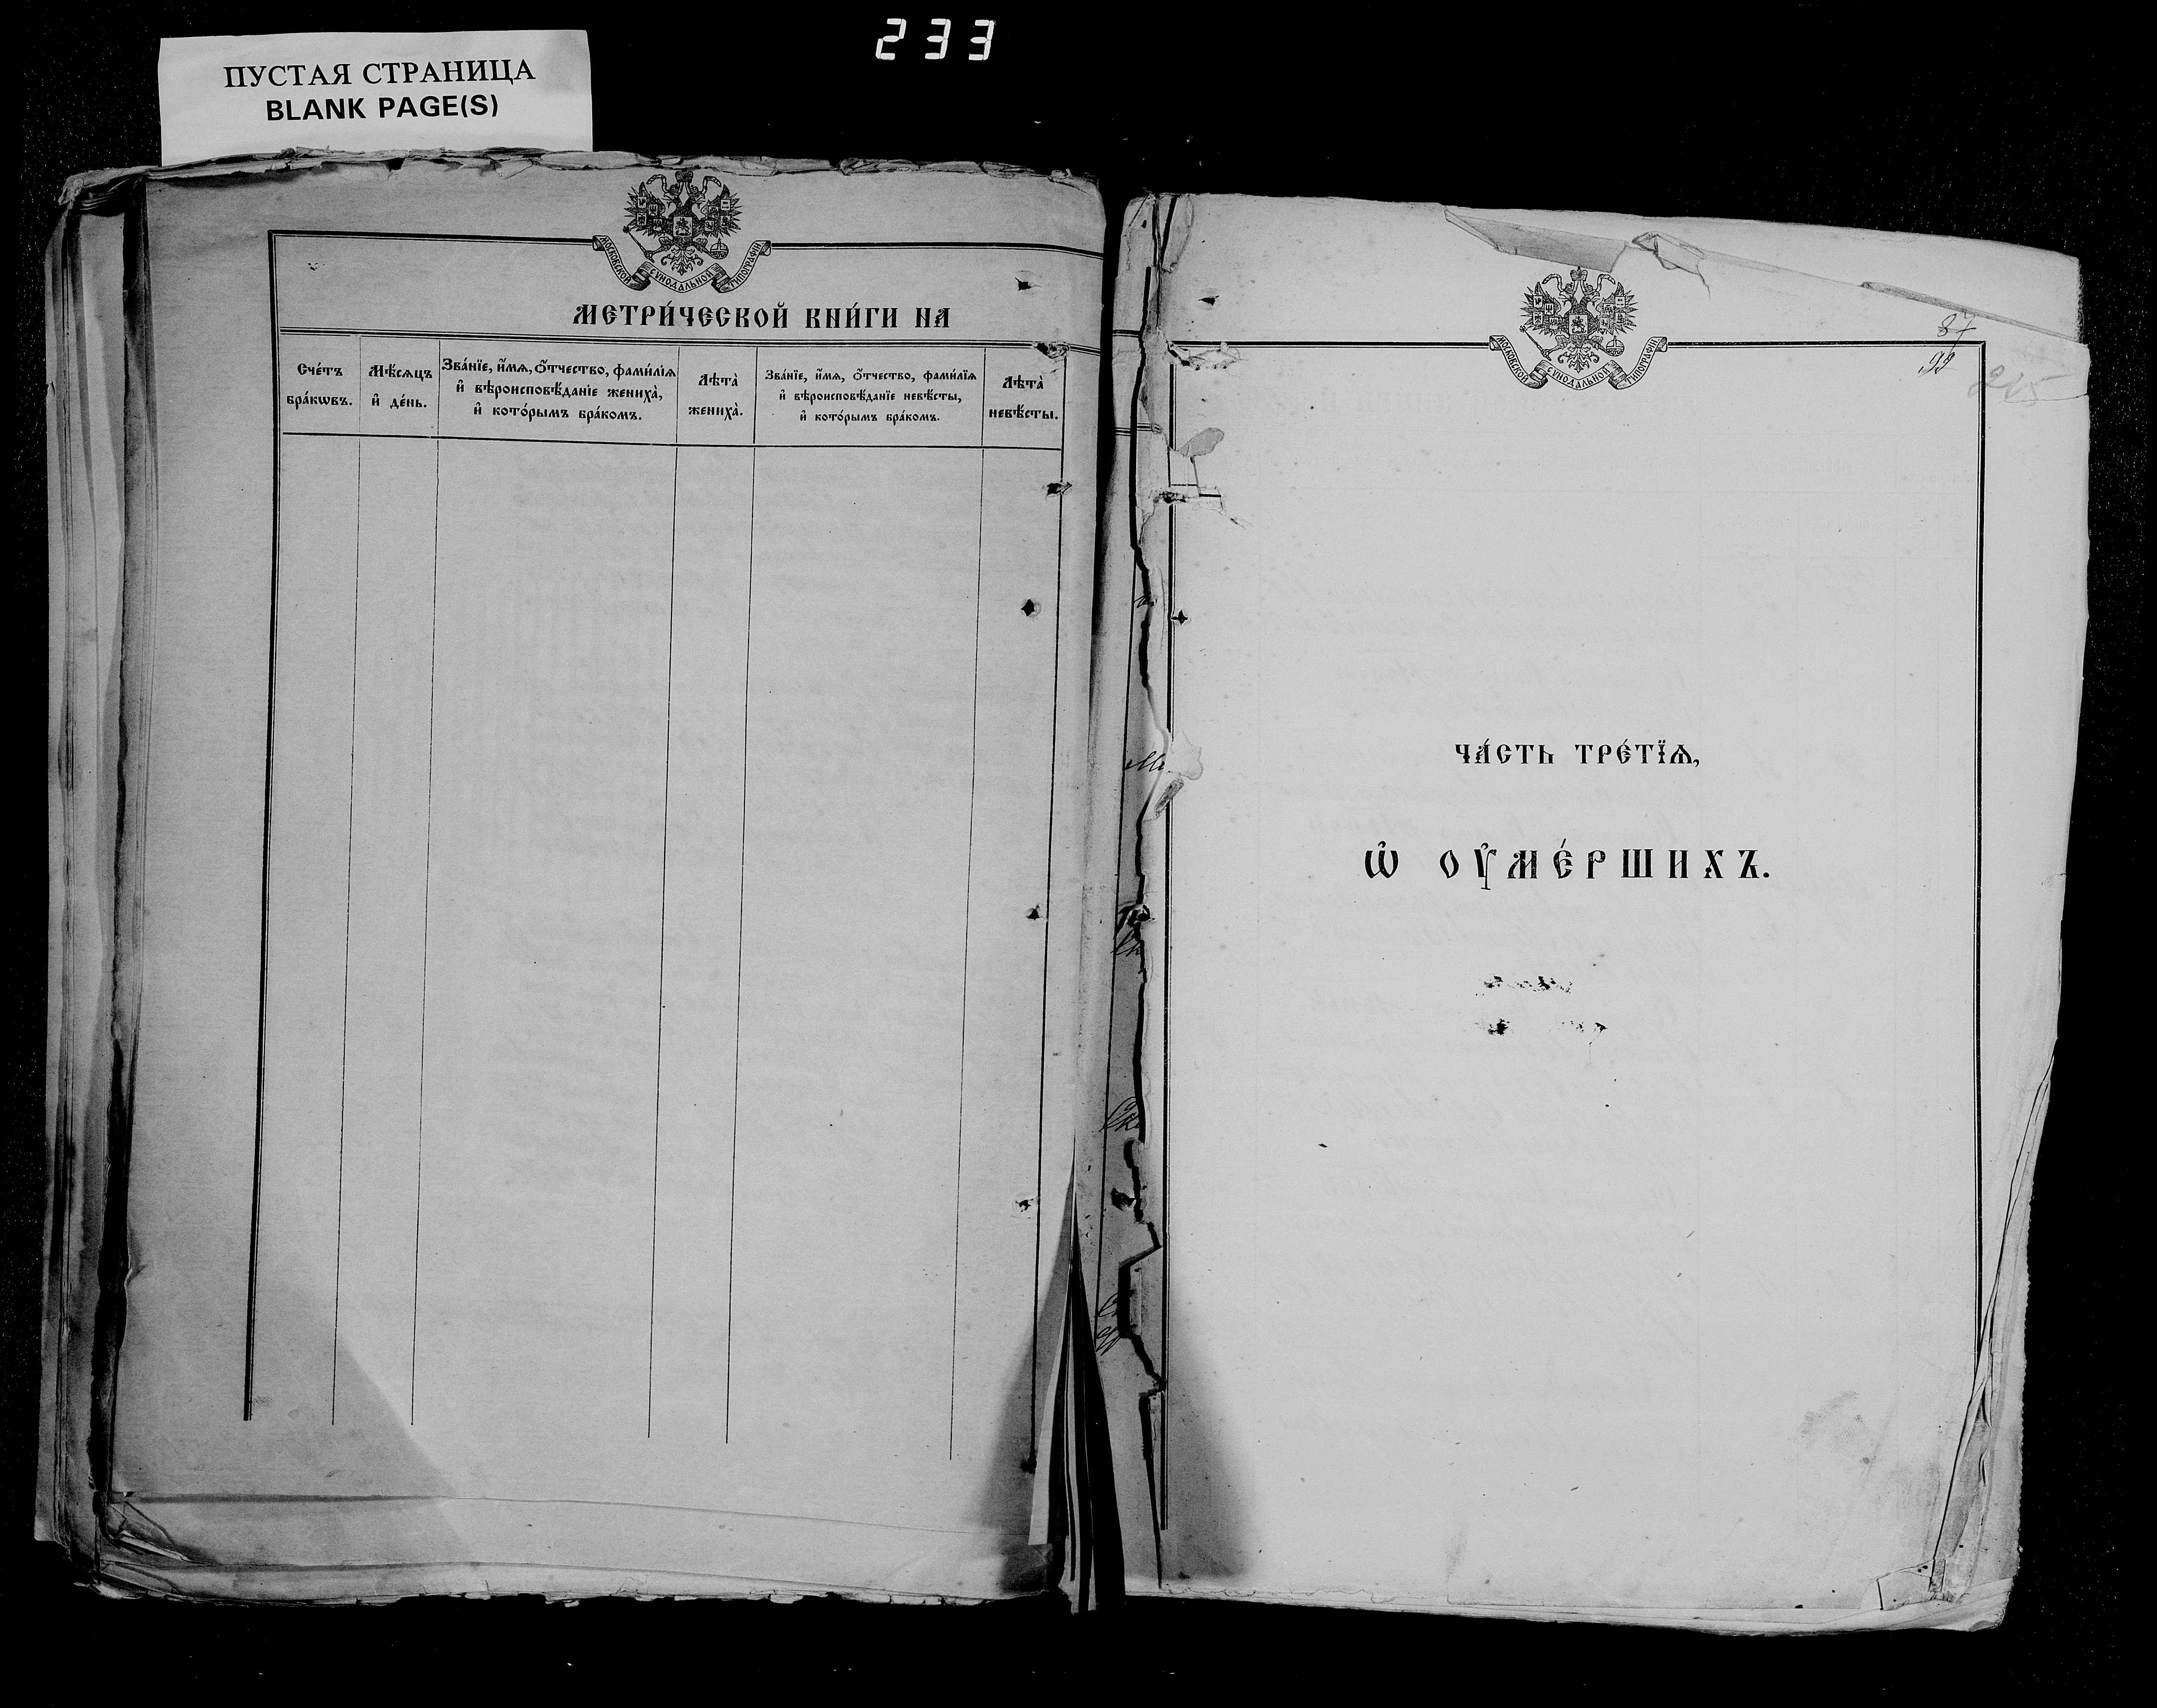 233
ПУСТАЯ СТРАНИЦА
BLANK PAGE(S)
МОСКОВСКОЙ СѴНОДАЛЬНОЙ ТИПОГРАФІИ
МЕТРИ́ЧЕСКОЙ КНИ́ГИ НА
Сче́тъ бра́кѡвъ.
Мѣ́сѧцъ и҆ де́нь.
Зва́нїе, и҆́мѧ, ѻ҆́тчество, фами́лїѧ
и҆ вѣроисповѣ́данїе жениха̀,
и҆ кото́рымъ бра́комъ.
Лѣта̀ жениха̀.
Зва́нїе, и҆́мѧ, ѻ҆́тчество, фами́лїѧ
и҆ вѣроисповѣ́данїе невѣ́сты,
и҆ кото́рымъ бра́комъ.
Лѣта̀ невѣ́сты.
МОСКОВСКОЙ СѴНОДАЛЬНОЙ ТИПОГРАФІИ
87
99
215
ЧА́СТЬ ТРЕ́ТЇѦ,
Ѡ҆ ОУ҆МЕ́РШИХЪ.